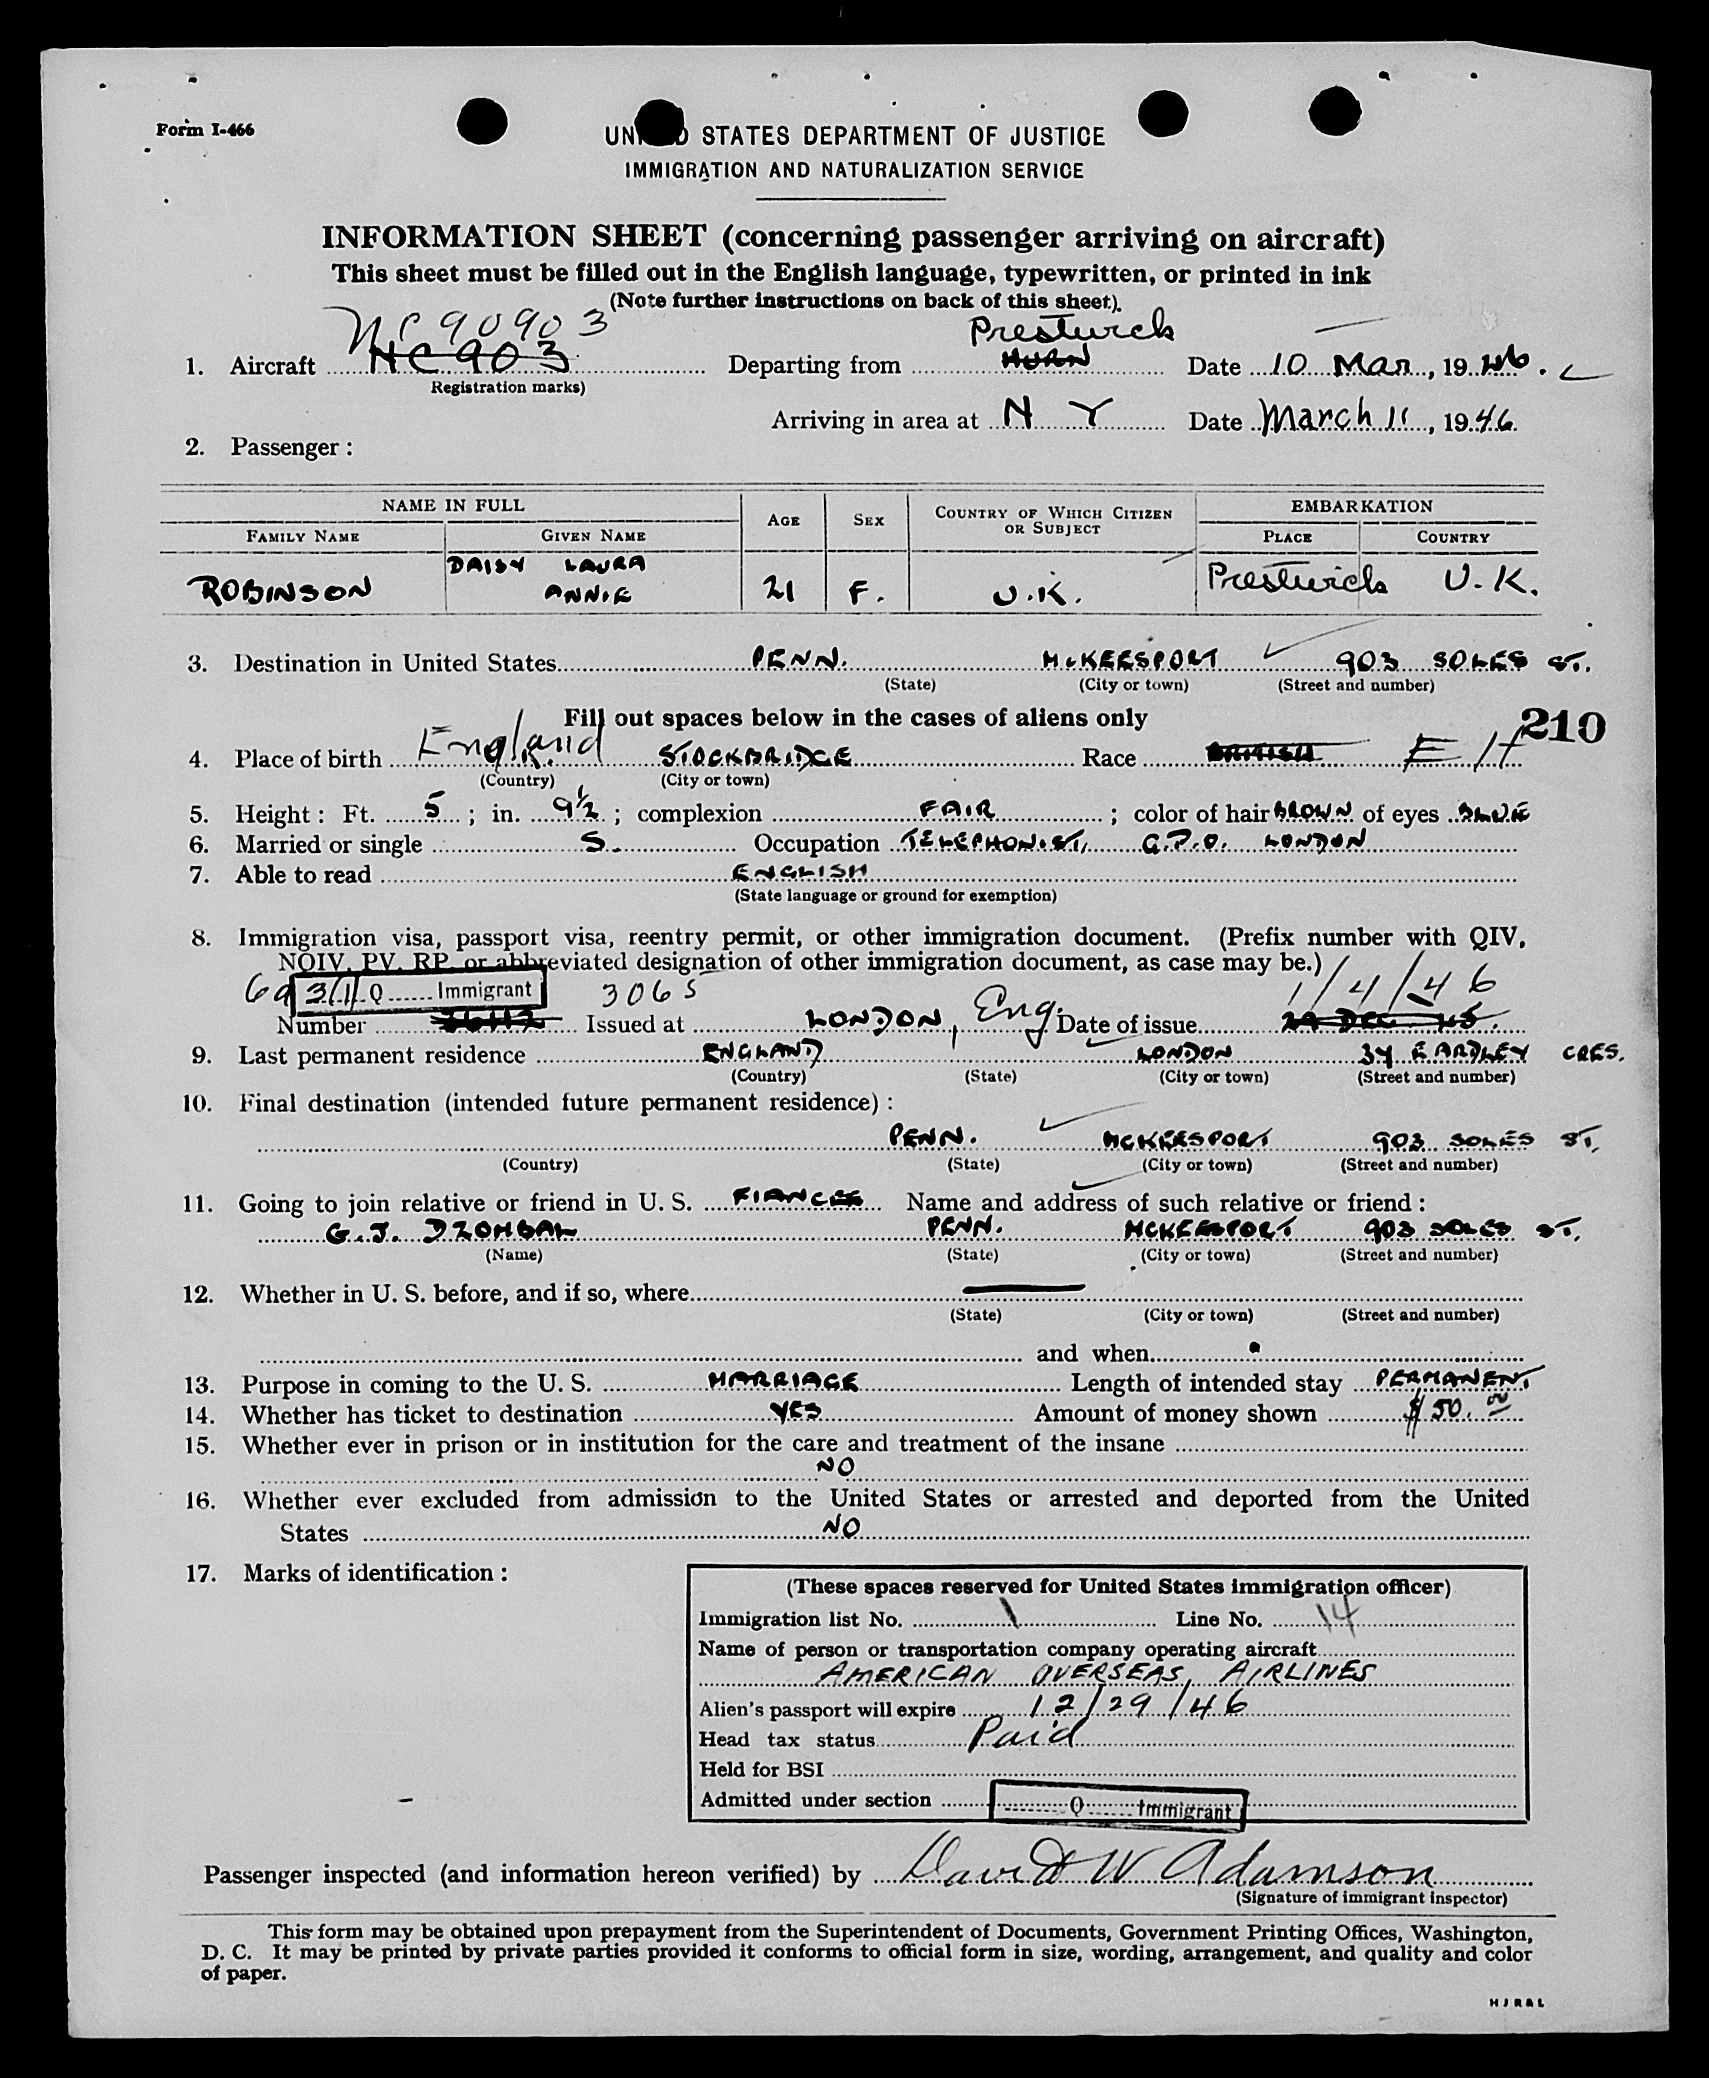 Form I-466
UNITED STATES DEPARTMENT OF JUSTICE
IMMIGRATION AND NATURALIZATION SERVICE
INFORMATION SHEET (concerning passenger arriving on aircraft)
This sheet must be filled out in the English language, typewritten, or printed in ink
(Note further instructions on back of this sheet).
NC 90903 Prestwick
1. Aircraft NC 903 Departing from HURN Date 10 Mar, 1946.
(Registration marks)
Arriving in area at N Y Date March 11, 1946.
2. Passenger :
NAME IN FULL AGE SEX COUNTRY OF WHICH CITIZEN OR SUBJECT EMBARKATION
FAMILY NAME GIVEN NAME PLACE COUNTRY
ROBINSON DAISY LAURA ANNIE 21 F. U.K. Prestwick U.K.
3. Destination in United States PENN. McKEESPORT 903 SOLES ST.
(State) (City or town) (Street and number)
Fill out spaces below in the cases of aliens only 210
4. Place of birth England STOCKBRIDGE Race BRITISH E
(Country) (City or town)
5. Height : Ft. 5 ; in. 9½ ; complexion FAIR ; color of hair BROWN of eyes BLUE
6. Married or single S. Occupation TELEPHONIST, G.P.O. LONDON
7. Able to read ENGLISH
(State language or ground for exemption)
8. Immigration visa, passport visa, reentry permit, or other immigration document. (Prefix number with QIV,
NQIV, PV, RP, or abbreviated designation of other immigration document, as case may be.)
Q Immigrant 3065 1/4/46
Number Issued at LONDON, Eng. Date of issue 29 DEC 45.
9. Last permanent residence ENGLAND LONDON 34 EARDLEY CRES.
(Country) (State) (City or town) (Street and number)
10. Final destination (intended future permanent residence) :
PENN. McKEESPORT 903 SOLES ST.
(Country) (State) (City or town) (Street and number)
11. Going to join relative or friend in U. S. FIANCEE Name and address of such relative or friend :
G. J. DZOMBAK PENN. McKEESPORT 903 SOLES ST.
(Name) (State) (City or town) (Street and number)
12. Whether in U. S. before, and if so, where
(State) (City or town) (Street and number)
and when
13. Purpose in coming to the U. S. MARRIAGE Length of intended stay PERMANENT
14. Whether has ticket to destination YES Amount of money shown $50.00
15. Whether ever in prison or in institution for the care and treatment of the insane
NO
16. Whether ever excluded from admission to the United States or arrested and deported from the United
States NO
17. Marks of identification :
(These spaces reserved for United States immigration officer)
Immigration list No. 1 Line No. 14
Name of person or transportation company operating aircraft
AMERICAN OVERSEAS AIRLINES
Alien's passport will expire 12/29/46
Head tax status Paid
Held for BSI
Admitted under section Q Immigrant
Passenger inspected (and information hereon verified) by David W Adamson
(Signature of immigrant inspector)
This form may be obtained upon prepayment from the Superintendent of Documents, Government Printing Offices, Washington,
D. C. It may be printed by private parties provided it conforms to official form in size, wording, arrangement, and quality and color
of paper.
HJR&L